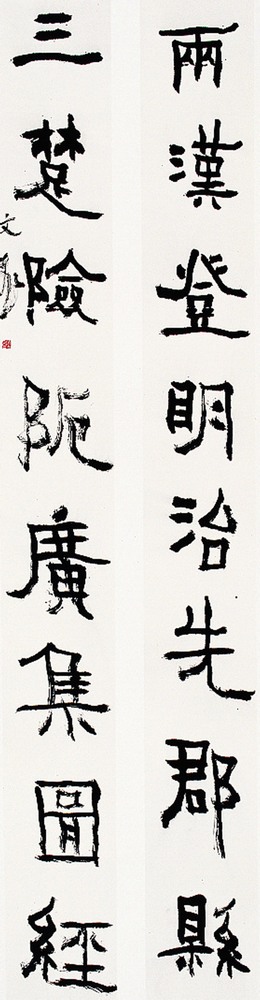 兩漢登明治先郡縣
三楚險阨廣集圖經
文